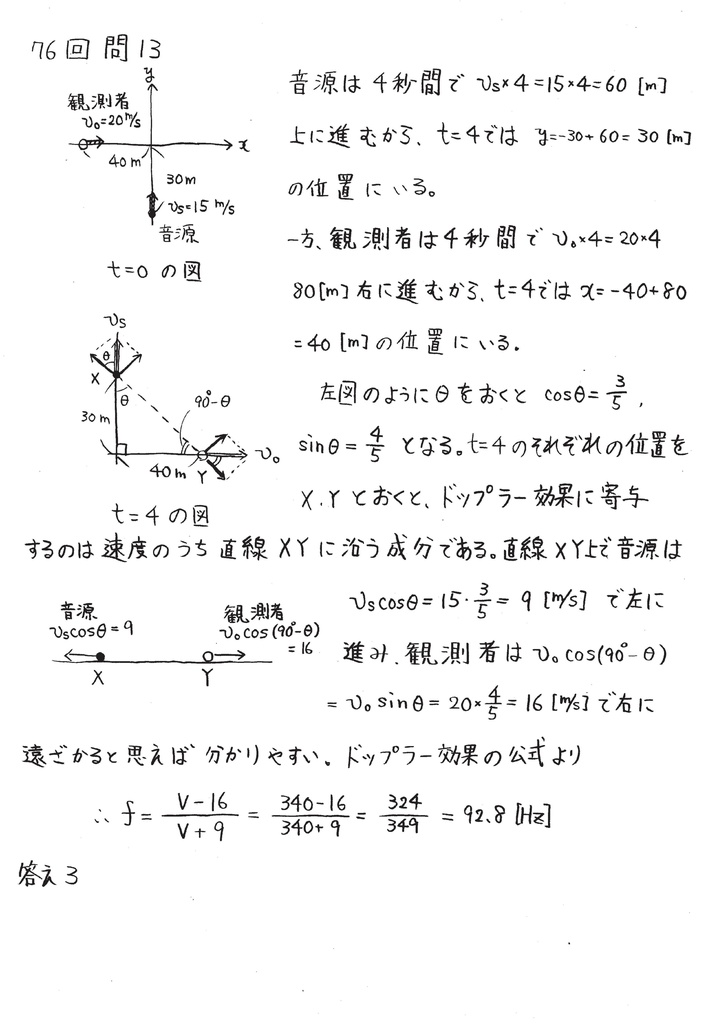 76回 問13
y
観測者
v₀=20m/s
x
40m
30m
vs=15 m/s
音源
t=0 の図
音源は4秒間で vs×4=15×4=60 [m]
上に進むから、t=4では y=-30+60=30 [m]
の位置にいる。
一方、観測者は4秒間で v₀×4=20×4
80[m]右に進むから、t=4では x=-40+80
=40 [m]の位置にいる。
vs
θ
X
θ
90°-θ
30m
v₀
40m
Y
t=4 の図
左図のようにθをおくと cosθ=3/5,
sinθ=4/5 となる。t=4のそれぞれの位置を
X.Yとおくと、ドップラー効果に寄与
するのは速度のうち直線XYに沿う成分である。直線XY上で音源は
音源
vscosθ=9
観測者
v₀cos(90°-θ)
=16
X
Y
vscosθ=15・3/5=9 [m/s] で左に
進み、観測者はv₀cos(90°-θ)
=v₀sinθ=20×4/5=16 [m/s]で右に
遠ざかると思えば分かりやすい。ドップラー効果の公式より
∴ f= V-16/V+9 = 340-16/340+9 = 324/349 = 92.8 [Hz]
答え3